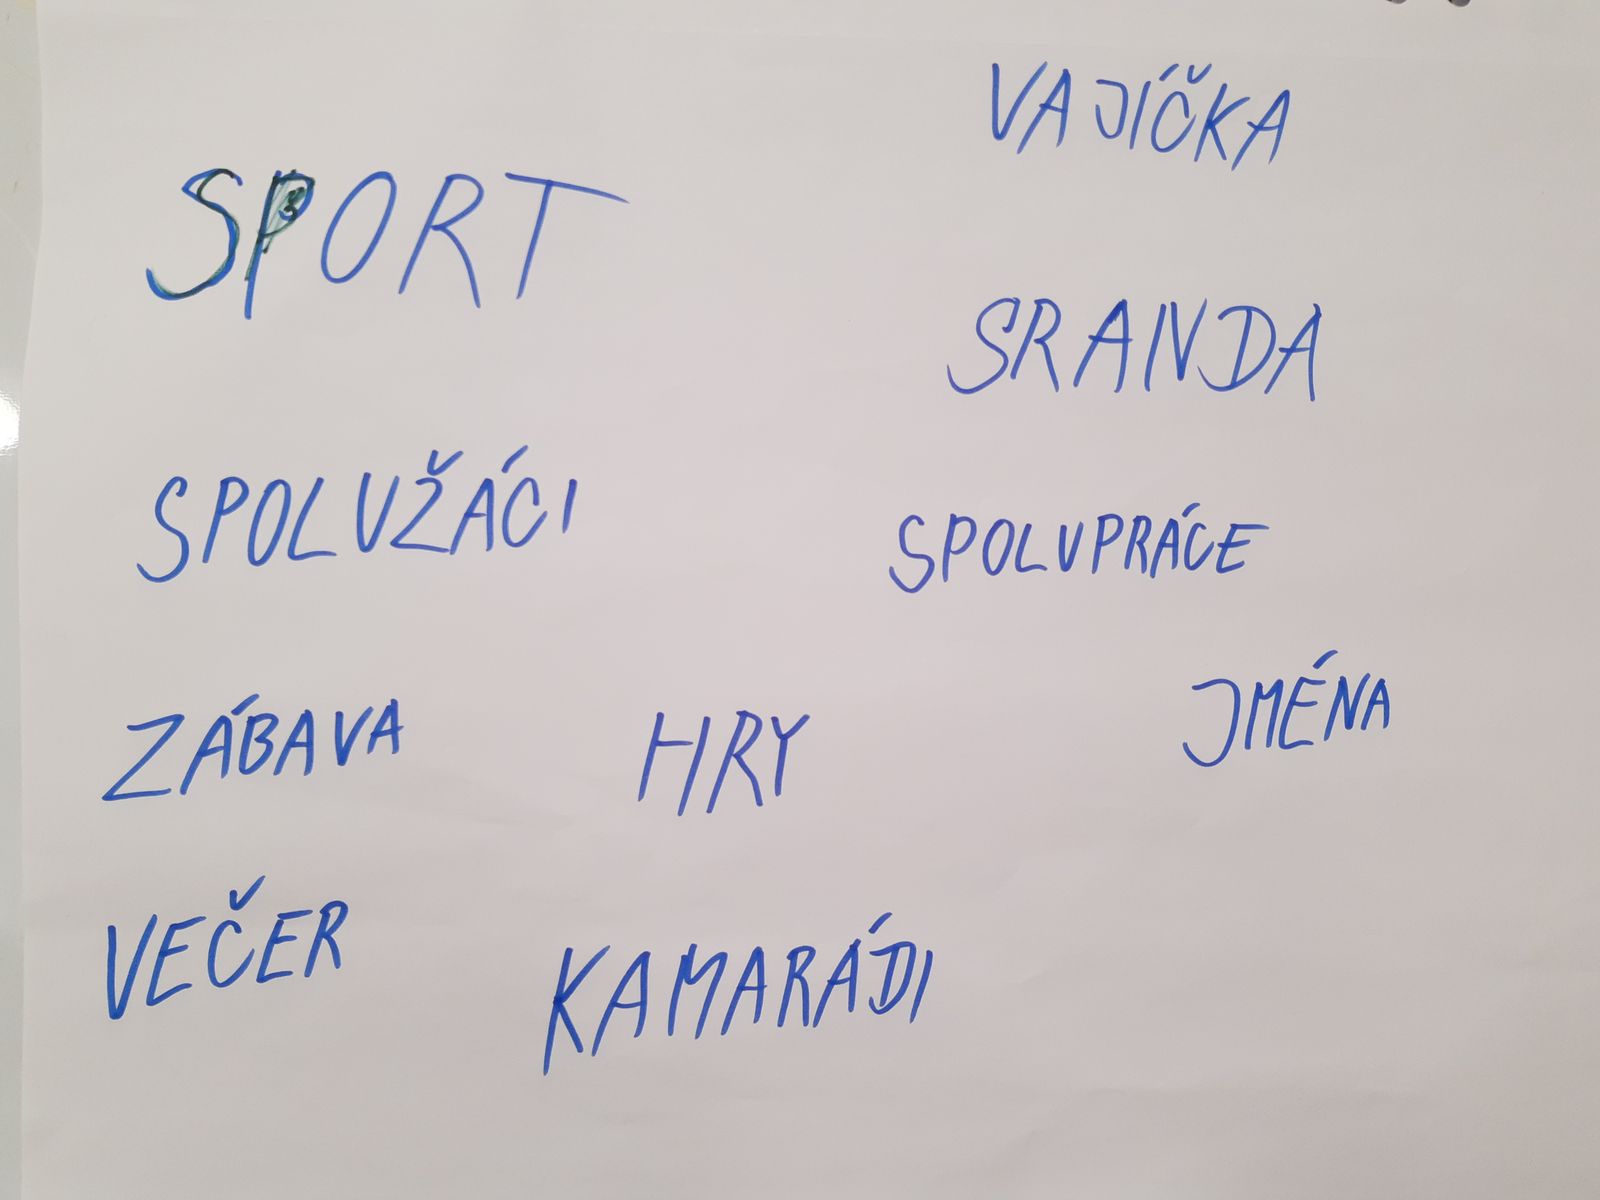 VAJÍČKA
SPORT
SRANDA
SPOLUŽÁCI
SPOLUPRÁCE
JMÉNA
ZÁBAVA
HRY
VEČER
KAMARÁDI